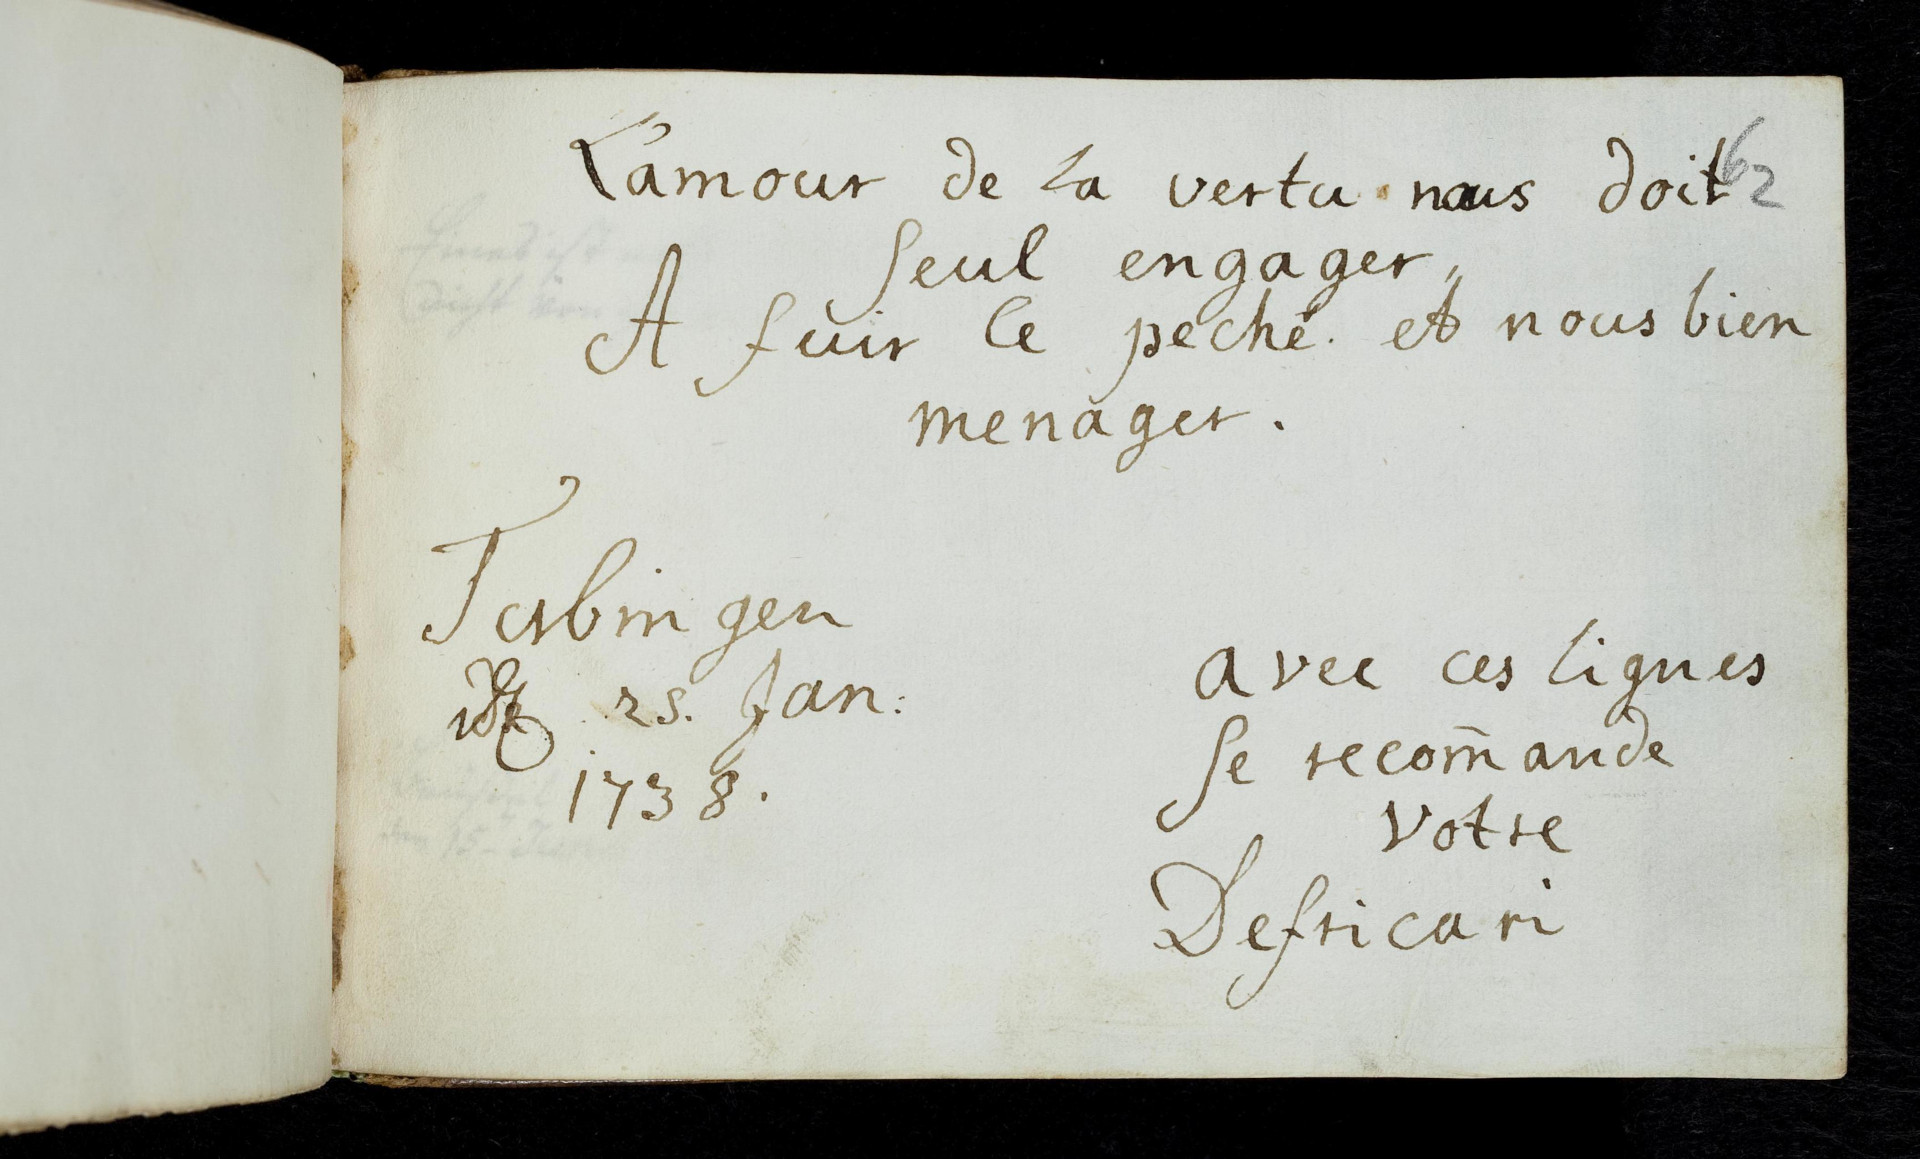 L'amour de la vertu nous doit
62
seul engager,,
A fuir le peché. et nous bien
menager.
Tubingen
25. Jan:
1738.
avec ces lignes
se recom̄ande
votre
Defricari